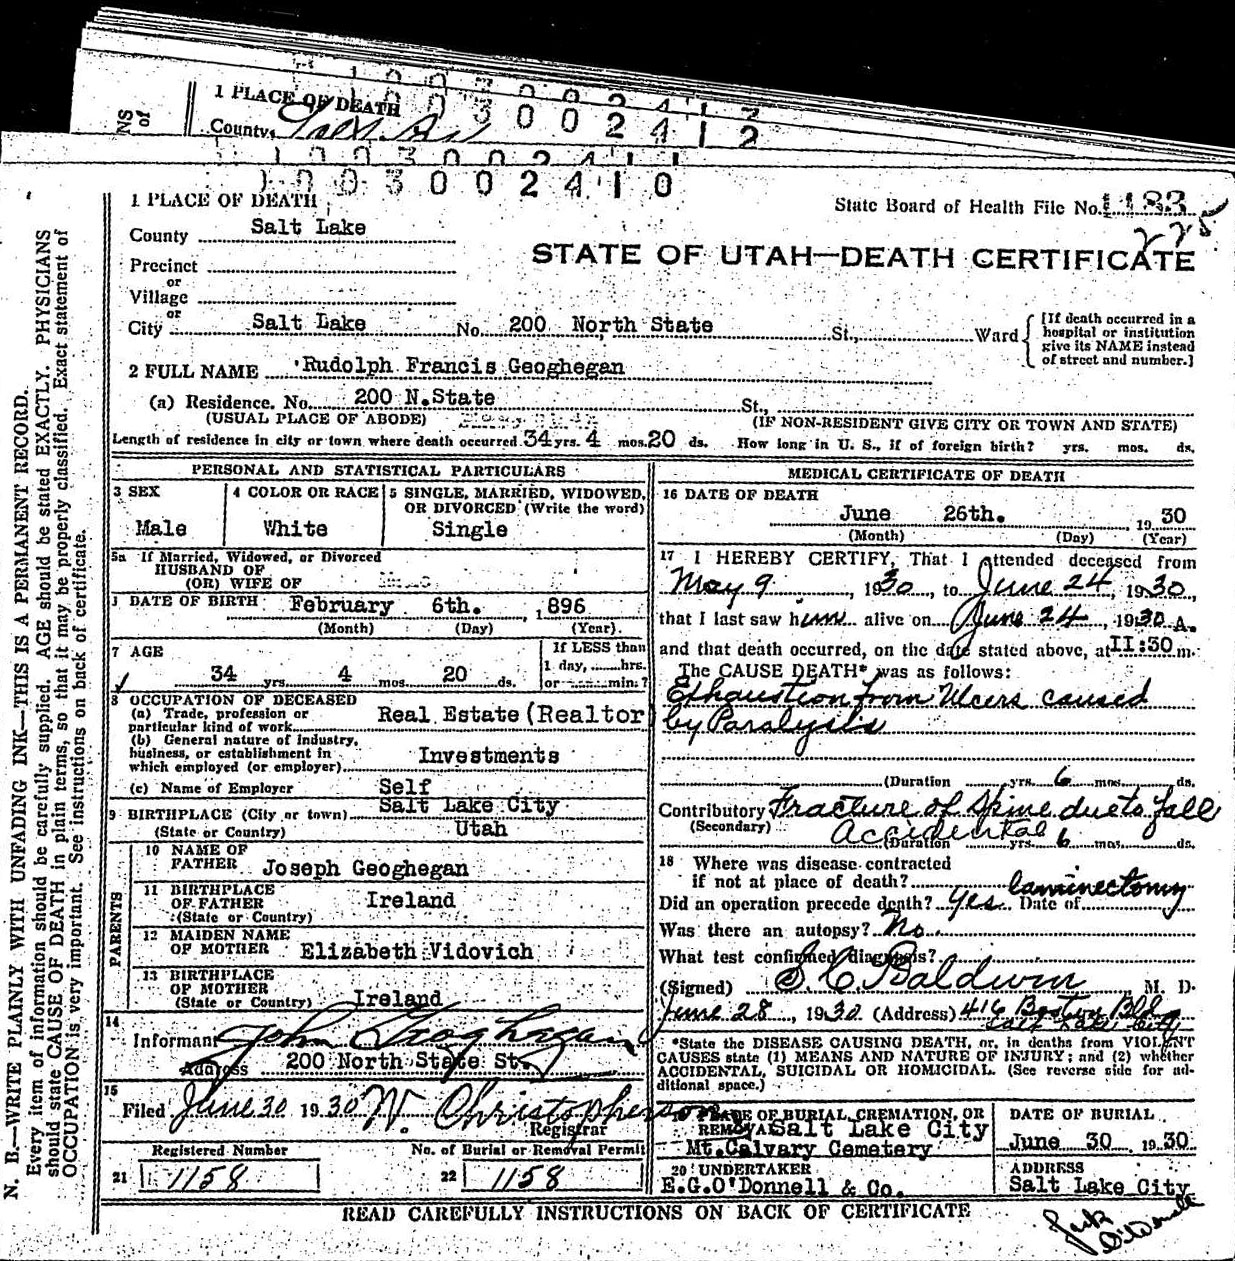 1 PLACE OF DEATH
County
1 0 0 3 0 0 2 4 1 2
1 0 0 3 0 0 2 4 1 1
1 0 0 3 0 0 2 4 1 0
1 PLACE OF DEATH
State Board of Health File No. 1183
225
County Salt Lake
STATE OF UTAH—DEATH CERTIFICATE
Precinct
or
Village
or
City Salt Lake No. 200 North State St., Ward
[If death occurred in a hospital or institution give its NAME instead of street and number.]
2 FULL NAME Rudolph Francis Geoghegan
(a) Residence. No. 200 N.State St.,
(USUAL PLACE OF ABODE) (IF NON-RESIDENT GIVE CITY OR TOWN AND STATE)
Length of residence in city or town where death occurred 34 yrs. 4 mos. 20 ds. How long in U. S., if of foreign birth? yrs. mos. ds.
PERSONAL AND STATISTICAL PARTICULARS
3 SEX
Male
4 COLOR OR RACE
White
5 SINGLE, MARRIED, WIDOWED, OR DIVORCED (Write the word)
Single
5a If Married, Widowed, or Divorced
HUSBAND OF
(OR) WIFE OF
DATE OF BIRTH February 6th. , 1896
(Month) (Day) (Year)
7 AGE
34 yrs. 4 mos. 20 ds.
If LESS than
1 day, hrs.
or min.?
8 OCCUPATION OF DECEASED
(a) Trade, profession or
particular kind of work Real Estate (Realtor
(b) General nature of industry,
business, or establishment in
which employed (or employer) Investments
(c) Name of Employer Self
9 BIRTHPLACE (City or town) Salt Lake City
(State or Country) Utah
PARENTS
10 NAME OF
FATHER Joseph Geoghegan
11 BIRTHPLACE
OF FATHER Ireland
(State or Country)
12 MAIDEN NAME
OF MOTHER Elizabeth Vidovich
13 BIRTHPLACE
OF MOTHER
(State or Country) Ireland
14
Informant John Geoghegan
Address 200 North State St.
15
Filed June 30 1930 W. Christopherson
Registrar
Registered Number
21 1158
No. of Burial or Removal Permit
22 1158
MEDICAL CERTIFICATE OF DEATH
16 DATE OF DEATH
June 26th. , 1930
(Month) (Day) (Year)
17 I HEREBY CERTIFY, That I attended deceased from
May 9 , 1930, to June 24, 1930,
that I last saw him alive on June 24, 1930 A.
and that death occurred, on the date stated above, at II:30 m.
The CAUSE DEATH* was as follows:
Exhaustion from Ulcers caused
by Paralysis
(Duration yrs. 6 mos. ds.
Contributory Fracture of Spine due to fall
(Secondary) Accidental
(Duration yrs. 6 mos. ds.
18 Where was disease contracted
if not at place of death?
laminectomy
Did an operation precede death? Yes Date of
Was there an autopsy? No
What test confirmed diagnosis?
(Signed) S C Baldwin M. D.
June 28 , 1930 (Address) 416 Boston Bld
Salt Lake City
*State the DISEASE CAUSING DEATH, or, in deaths from VIOLENT
CAUSES state (1) MEANS AND NATURE OF INJURY; and (2) whether
ACCIDENTAL, SUICIDAL OR HOMICIDAL. (See reverse side for ad-
ditional space.)
19 PLACE OF BURIAL, CREMATION, OR
REMOVAL Salt Lake City
Mt.Calvary Cemetery
DATE OF BURIAL
June 30 1930
20 UNDERTAKER
E.G.O'Donnell & Co.
ADDRESS
Salt Lake City
READ CAREFULLY INSTRUCTIONS ON BACK OF CERTIFICATE
O'Donnell
N. B.—WRITE PLAINLY WITH UNFADING INK—THIS IS A PERMANENT RECORD.
Every item of information should be carefully supplied. AGE should be stated EXACTLY. PHYSICIANS
should state CAUSE OF DEATH in plain terms, so that it may be properly classified. Exact statement of
OCCUPATION is very important. See instructions on back of certificate.